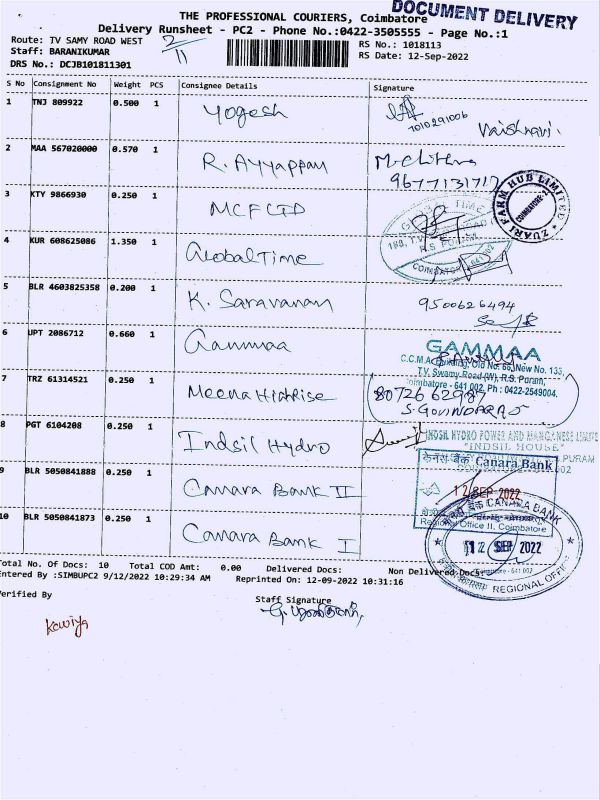 DOCUMENT DELIVERY
THE PROFESSIONAL COURIERS, Coimbatore
Delivery Runsheet - PC2 - Phone No.:0422-3505555 - Page No.:1
Route: TV SAMY ROAD WEST
RS No.: 1018113
Staff: BARANIKUMAR
RS Date: 12-Sep-2022
DRS No.: DCJB101811301
S No Consignment No Weight PCS Consignee Details Signature
1 TNJ 809922 0.500 1 Yogesh
7010291006 Vaishnavi.
2 MAA 567020000 0.570 1 R. Ayyappan
9677131717
3 KTY 9866930 0.250 1 MCFCID
ZUARI FARM HUB LIMITED
COIMBATORE-2
4 KUR 608625086 1.350 1 Global Time
GLOBAL TIME
R.S PURAM
COIMBATORE 641 002
5 BLR 4603825358 0.200 1 K. Saravanan 9500626494
6 UPT 2086712 0.660 1 Gammaa
GAMMAA
C.C.M.A. Building, Old No. 66, New No. 133,
T.V. Swamy Road (W), R.S. Puram,
Coimbatore - 641 002, Ph : 0422-2549004.
7 TRZ 61314521 0.250 1 Meena HighRise 80726 62987
S. GOVINDARAJ
8 PGT 6104208 0.250 1 Indsil Hydro
INDSIL HYDRO POWER AND MANGANESE LIMITED
"INDSIL HOUSE"
9 BLR 5050841888 0.250 1 Canara Bank II
केनरा बैंक Canara Bank
12 SEP 2022
Regional Office II, Coimbatore
10 BLR 5050841873 0.250 1 Canara Bank I
CANARA BANK
12 SEP 2022
REGIONAL OFFICE
Total No. Of Docs: 10 Total COD Amt: 0.00 Delivered Docs: Non Delivered Docs:
Entered By :SIMBUPC2 9/12/2022 10:29:34 AM Reprinted On: 12-09-2022 10:31:16
Verified By Staff Signature
Kowiya